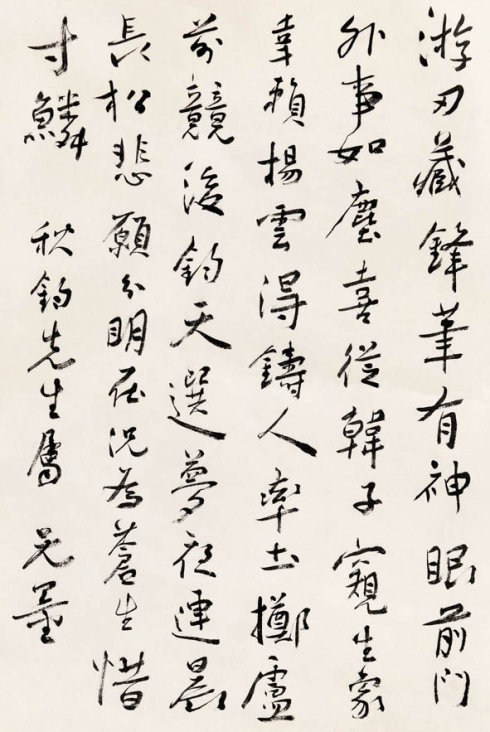 游刃藏鋒筆有神眼前門
外事如塵喜從韓子窺生象
幸賴楊雲得鑄人率土擲盧
競鈞天選夢夜連晨
長松悲願分明在況為蒼生惜
寸鱗 秋鈞先生屬 无量